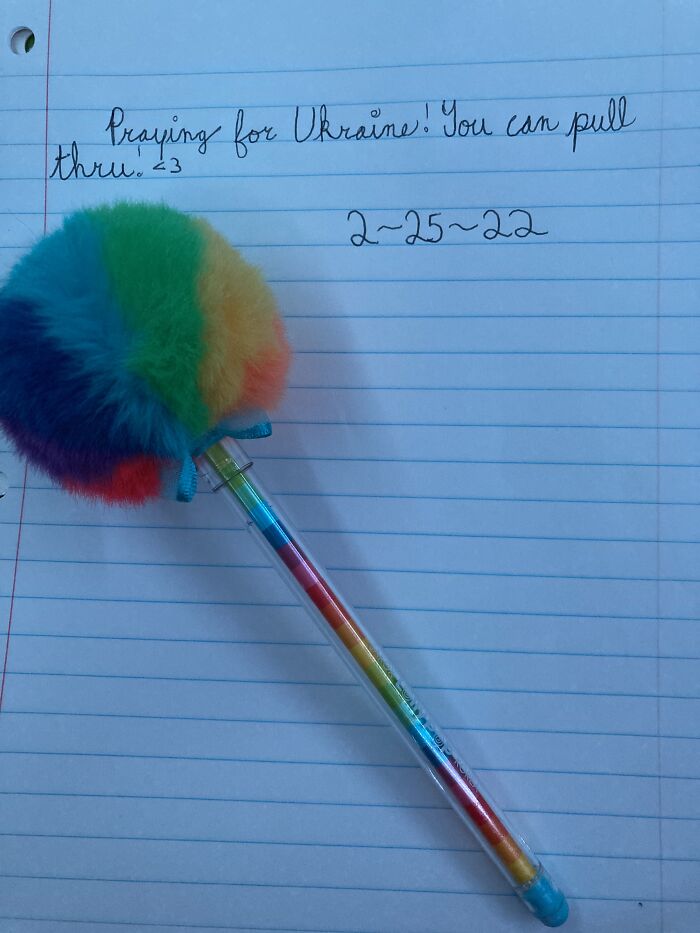 Praying for Ukraine! You can pull
thru! <3
2~25~22